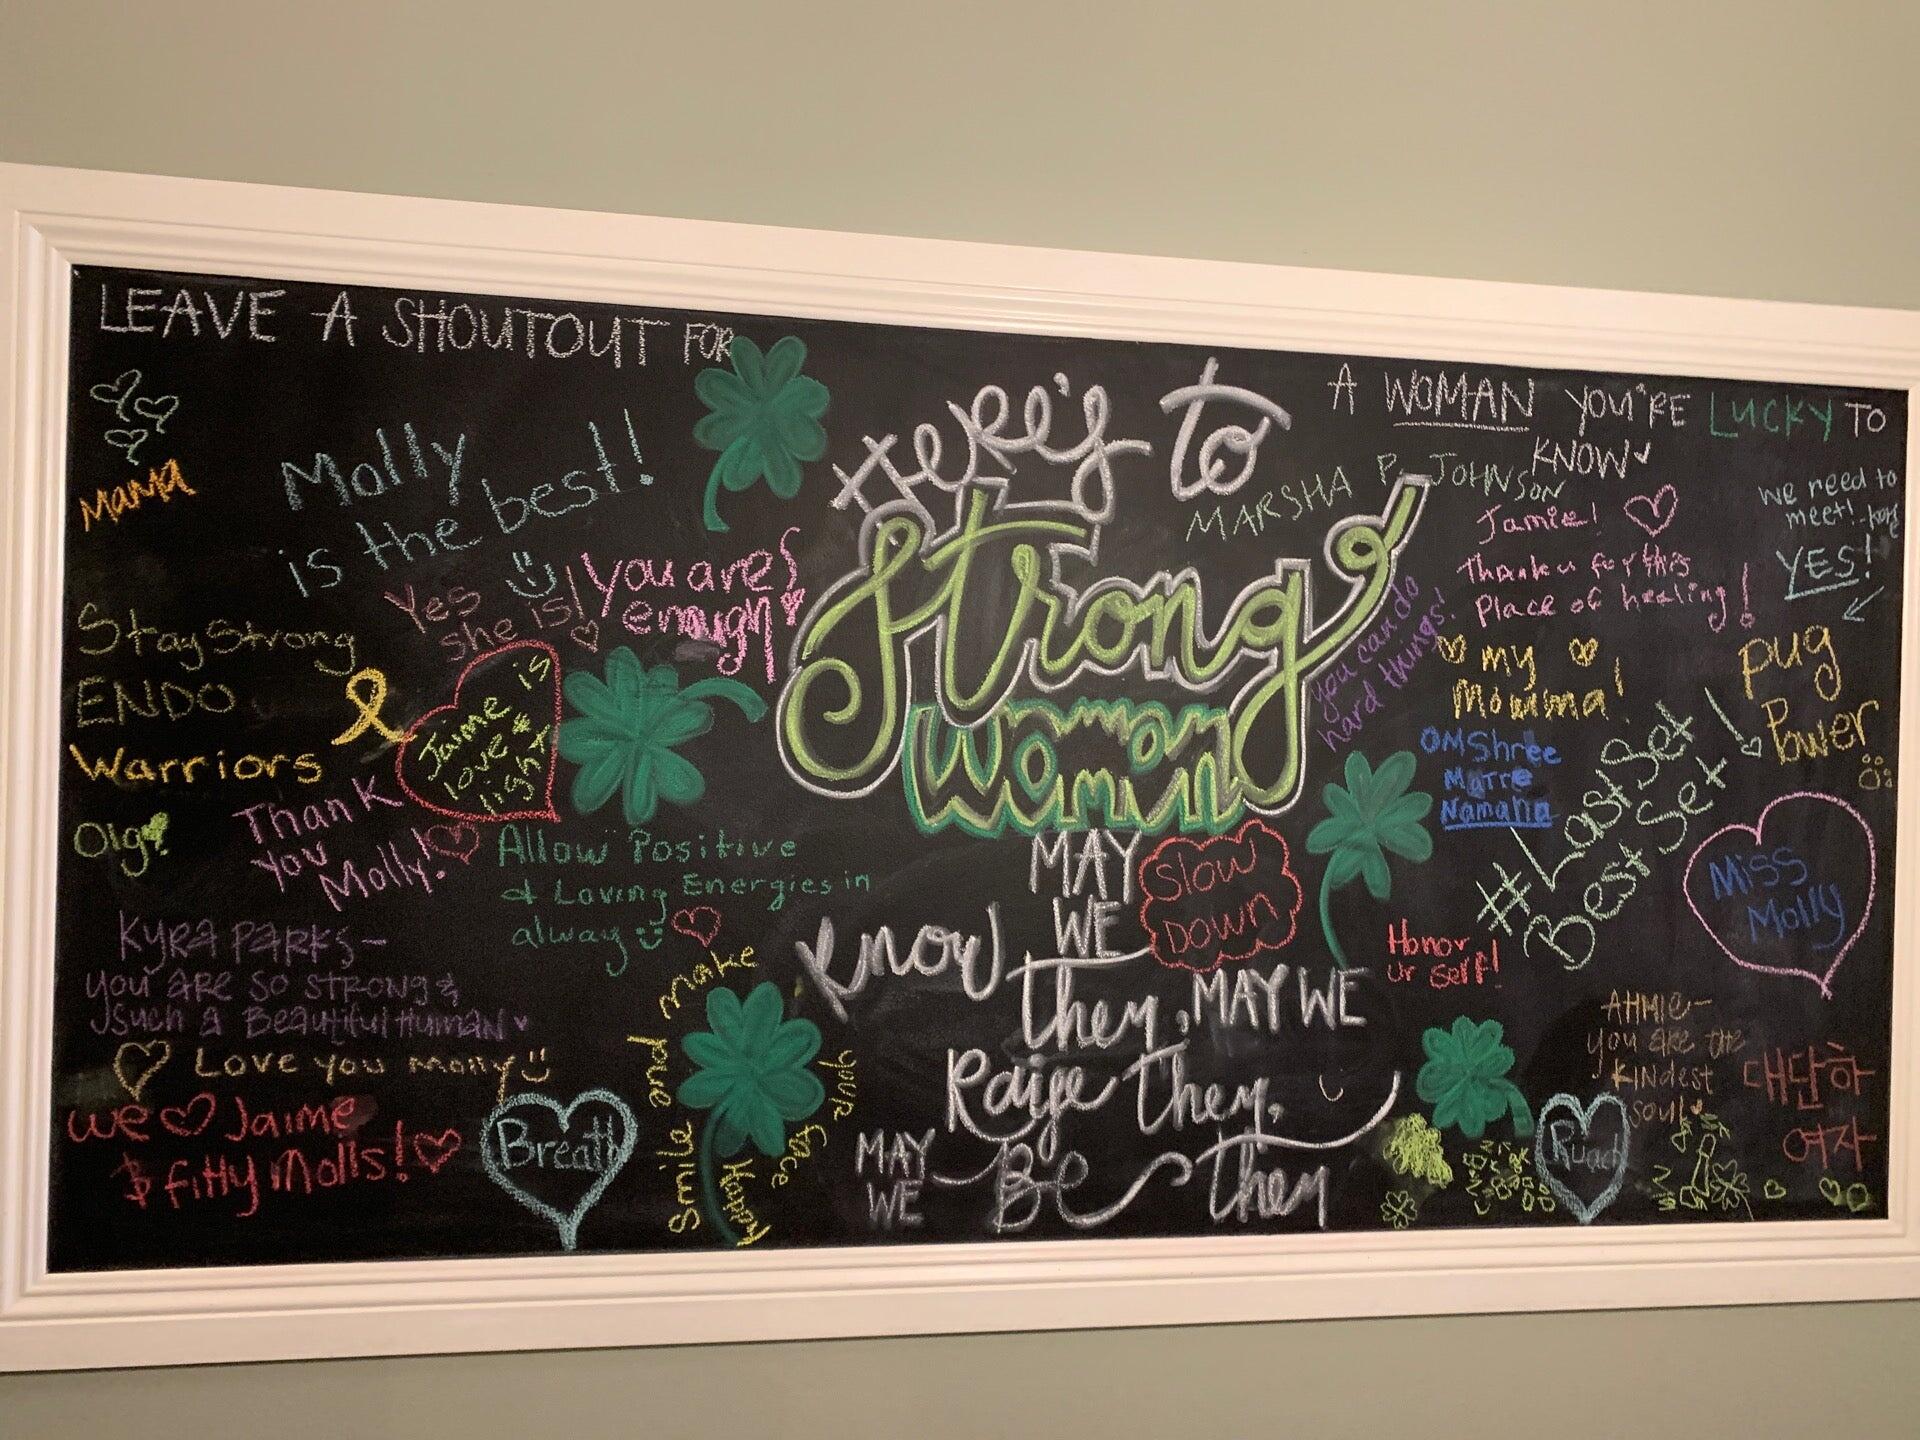 LEAVE A SHOUTOUT FOR
A WOMAN YOU'RE LUCKY TO
KNOW
Mama
Molly
is the best!
Yes
she is!
You are
enough
Stay Strong
ENDO
Warriors
Jaime is
love &
light
Olga
Thank
you
Molly!
Allow Positive
& Loving Energies in
alway
KYRA PARKS-
YOU ARE SO STRONG &
SUCH A BEAUTIFUL HUMAN
Love you Molly
we Jaime
& fitty Molls!
Breath
make
your
face
Happy
and
Smile
HERE'S to
Strong
women
MAY
WE
know
them, MAY WE
Raise them,
MAY
WE
Be them
SLOW
DOWN
MARSHA P. JOHNSON
Jamie!
Thank u for this
Place of healing!
we need to
meet!
YES!
you can do
hard things!
my
Momma!
OM Shree
Matre
Namaha
#Last Set
Best Set!
Pug
Power
Miss
Molly
Honor
ur self!
AHMIE-
you are the
KINdest
soul
Ruach
대단하
여자